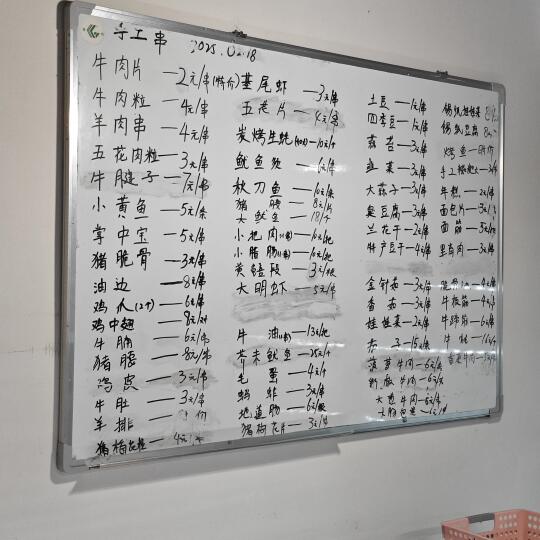 手工串 2025.02.18
牛肉片 — 2元/串(特价)
牛肉粒 — 4元/串
羊肉串 — 4元/串
五花肉粒 — 3元/串
牛腱子 — 7元/串
小黄鱼 — 5元/条
掌中宝 — 5元/串
猪脆骨 — 3元/串
油边 — 8元/串
鸡爪(2个) — 6元/串
鸡中翅 — 8元/对
牛腩 — 6元/串
猪腰 — 8元/串
鸡皮 — 3元/串
牛肚 — 3元/串
羊排
4元/串
基尾虾 — 3元/串
五老片 — 4元/串
炭烤生蚝 — 10元/个
鱿鱼须 — 6元/串
秋刀鱼 — 10元/条
猪腰 — 8元/片
大鱿鱼 — 18/个
小把肉 — 10元/把
小腊肠 — 10元/把
黄鳝段 — 3元/根
大明虾 — 5元/串
牛油 — 13元/把
芥末鱿鱼 — 38元/个
毛蛋 — 4元/个
蚂蚱 — 3元/串
地道肠 — 6元/根
3元/串
土豆 — 1元/串
四季豆 — 1元/串
蒜苔 — 3元/串
韭菜 — 3元/串
大蒜子 — 3元/串
臭豆腐 — 3元/串
兰花干 — 2元/串
特产豆干 — 4元/串
金针菇 — 3元/串
香菇 — 3元/串
娃娃菜 — 2元/串
15元/串
菠萝牛肉 — 6元/串
牛肉 — 6元/串
大葱牛肉 — 6元/串
锡纸娃娃菜
锡纸豆腐
烤鱼
手工
年糕 — 2元/串
面包片
面筋
里脊肉 — 3元/串
4元/串
牛板筋 — 4元/串
牛蹄筋 — 6元/串
牛
香菜牛肉